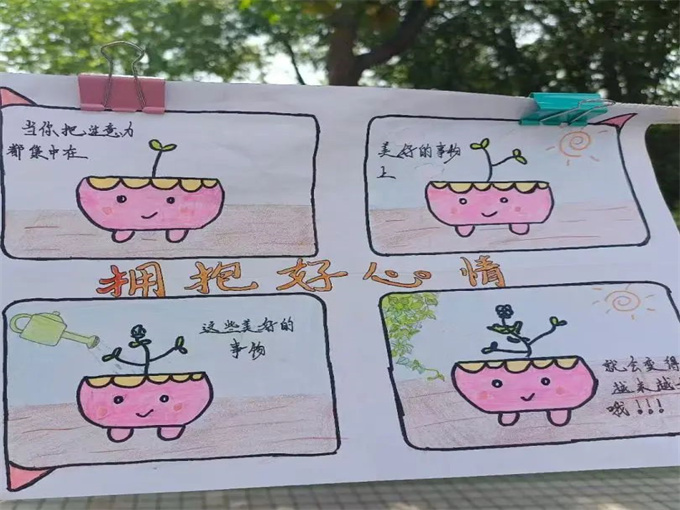 当你把注意力
都集中在
美好的事物
上
拥抱好心情
这些美好的
事物
就会变得
越来越
哦!!!